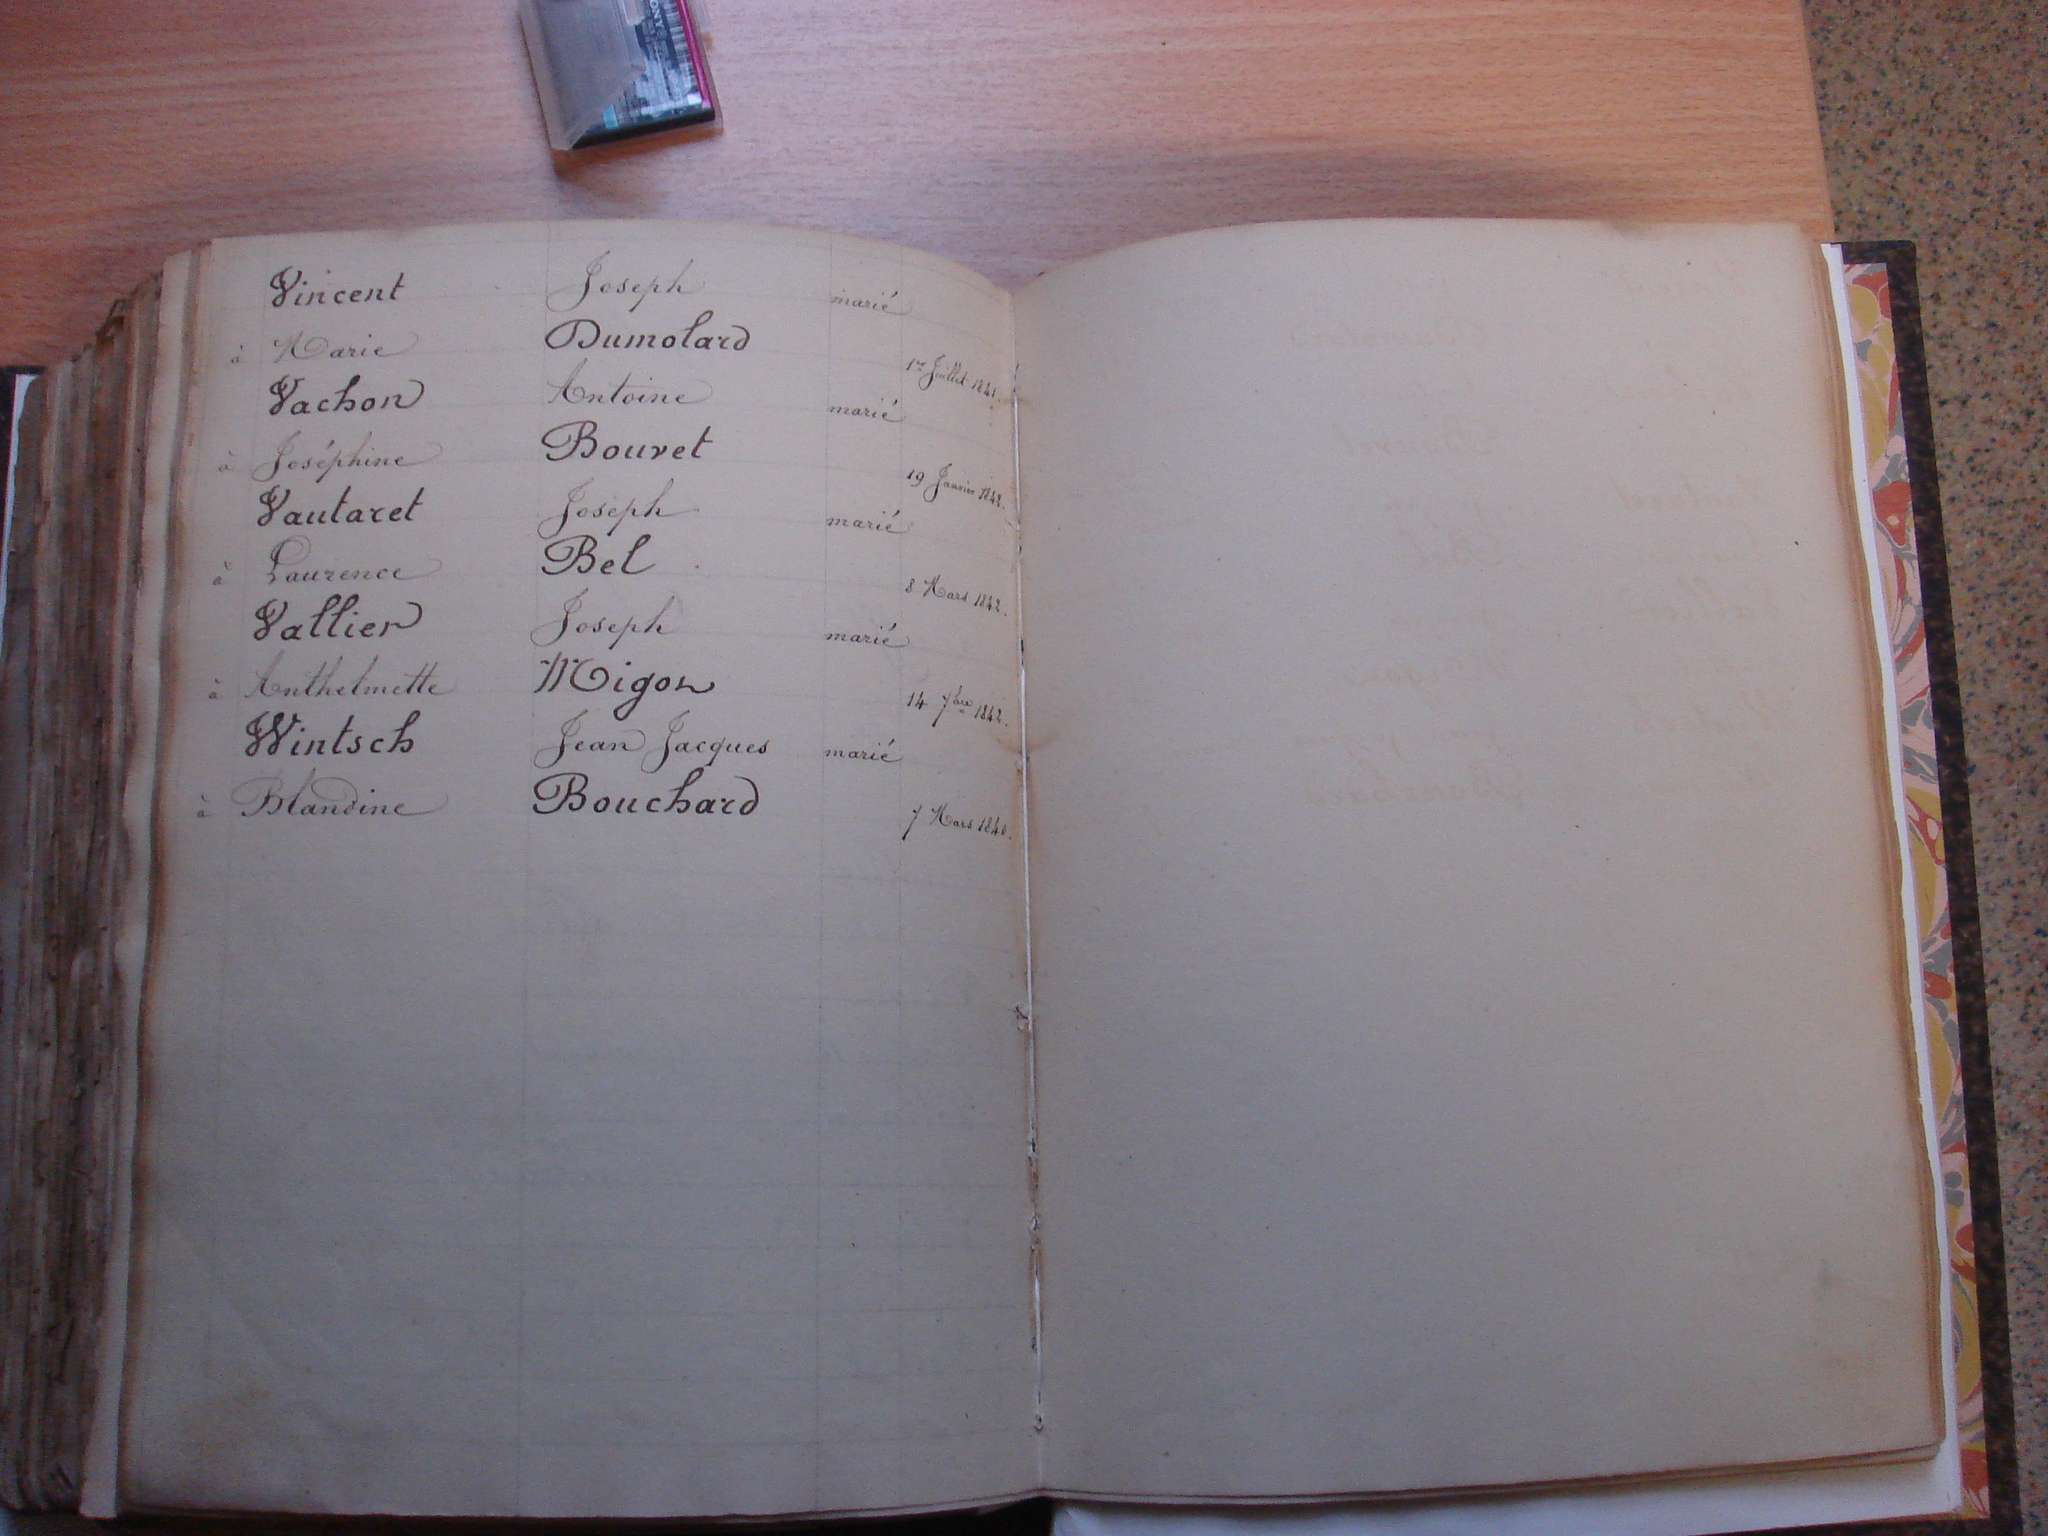 Vincent Joseph marié
à Marie Dumolard 1er Juillet 1841.
Vachon Antoine marié
à Joséphine Bouvet 19 Janvier 1842.
Vautaret Joseph marié
à Laurence Bel 8 Mars 1842.
Vallier Joseph marié
à Anthelmette Migon 14 7bre 1842.
Wintsch Jean Jacques marié
à Blandine Bouchard 7 Mars